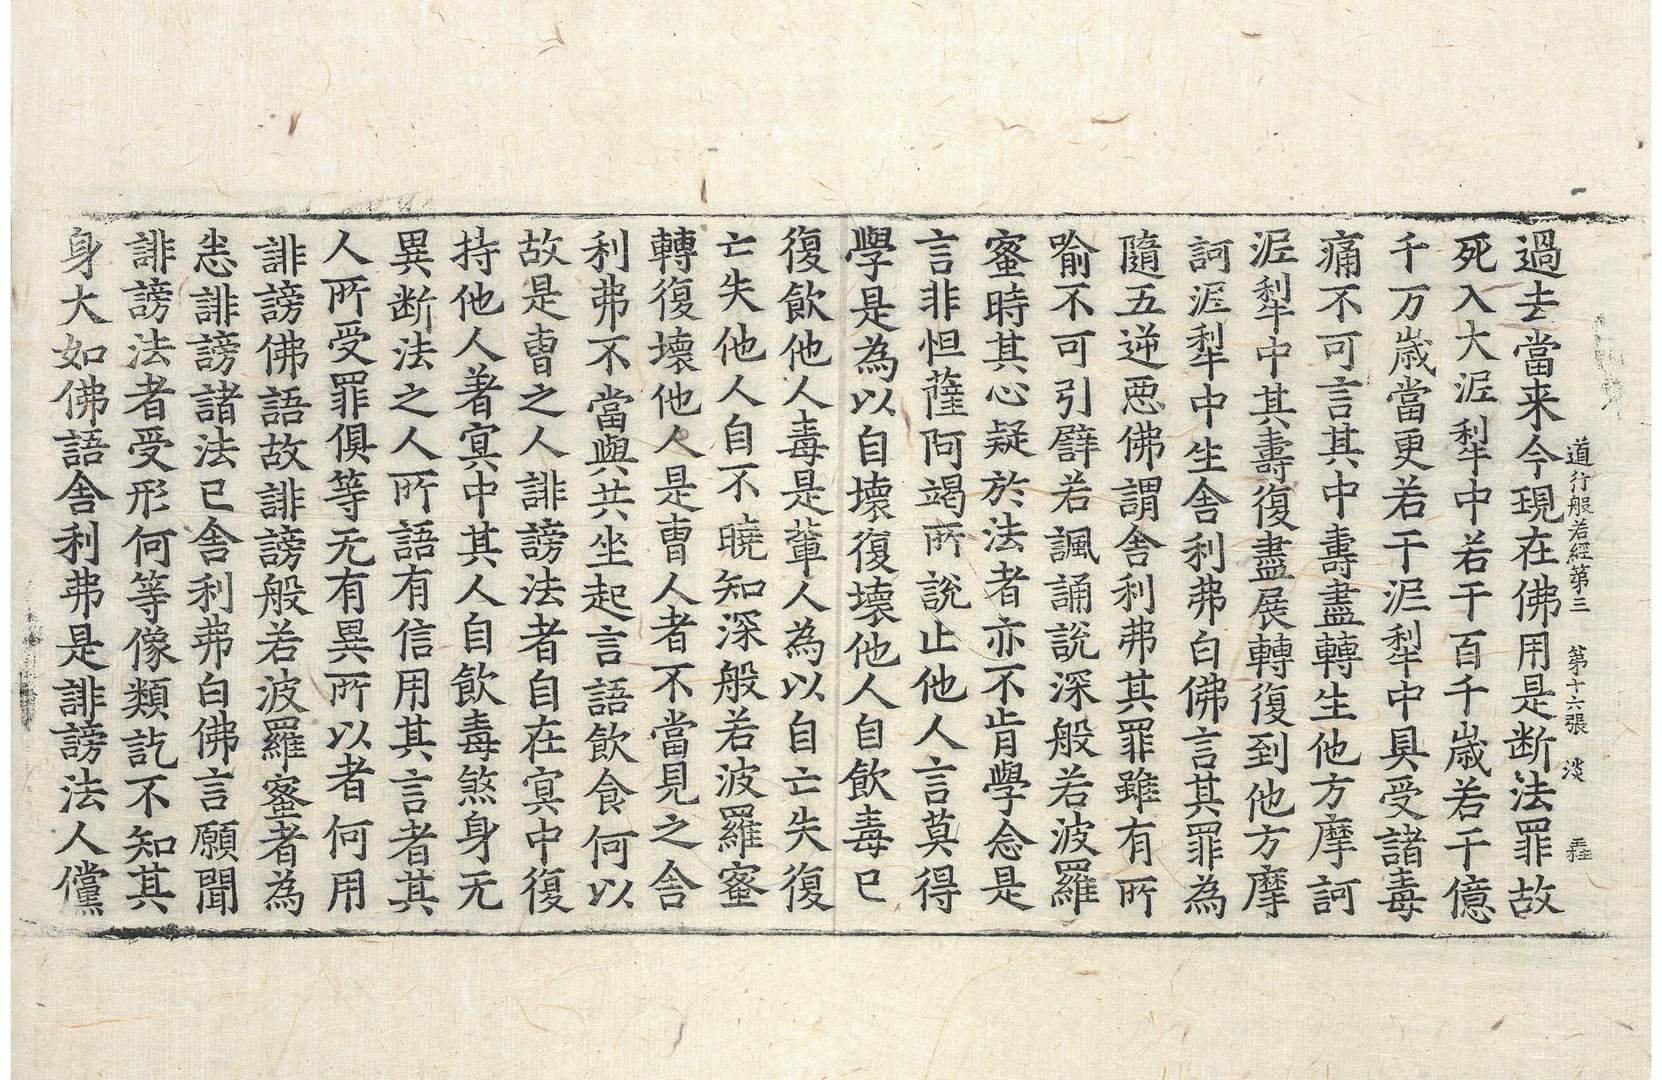 道行般若經第三 第十六張 淡
過去當来今現在佛用是断法罪故
死入大泥犁中若干百千歳若干億
千万歳當更若干泥犁中具受諸毒
痛不可言其中壽盡轉生他方摩訶
泥犁中其壽復盡展轉復到他方摩
訶泥犁中生舍利弗白佛言其罪為
隨五逆惡佛謂舍利弗其罪雖有所
喻不可引譬若諷誦說深般若波羅
蜜時其心疑於法者亦不肯學念是
言非怛薩阿竭所說止他人言莫得
學是為以自壞復壞他人自飲毒已
復飲他人毒是輩人為以自亡失復
亡失他人自不曉知深般若波羅蜜
轉復壞他人是曹人者不當見之舍
利弗不當與共坐起言語飲食何以
故是曹之人誹謗法者自在冥中復
持他人著冥中其人自飲毒煞身无
異断法之人所語有信用其言者其
人所受罪俱等无有異所以者何用
誹謗佛語故誹謗般若波羅蜜者為
悉誹謗諸法已舍利弗白佛言願聞
誹謗法者受形何等像類訖不知其
身大如佛語舍利弗是誹謗法人儻